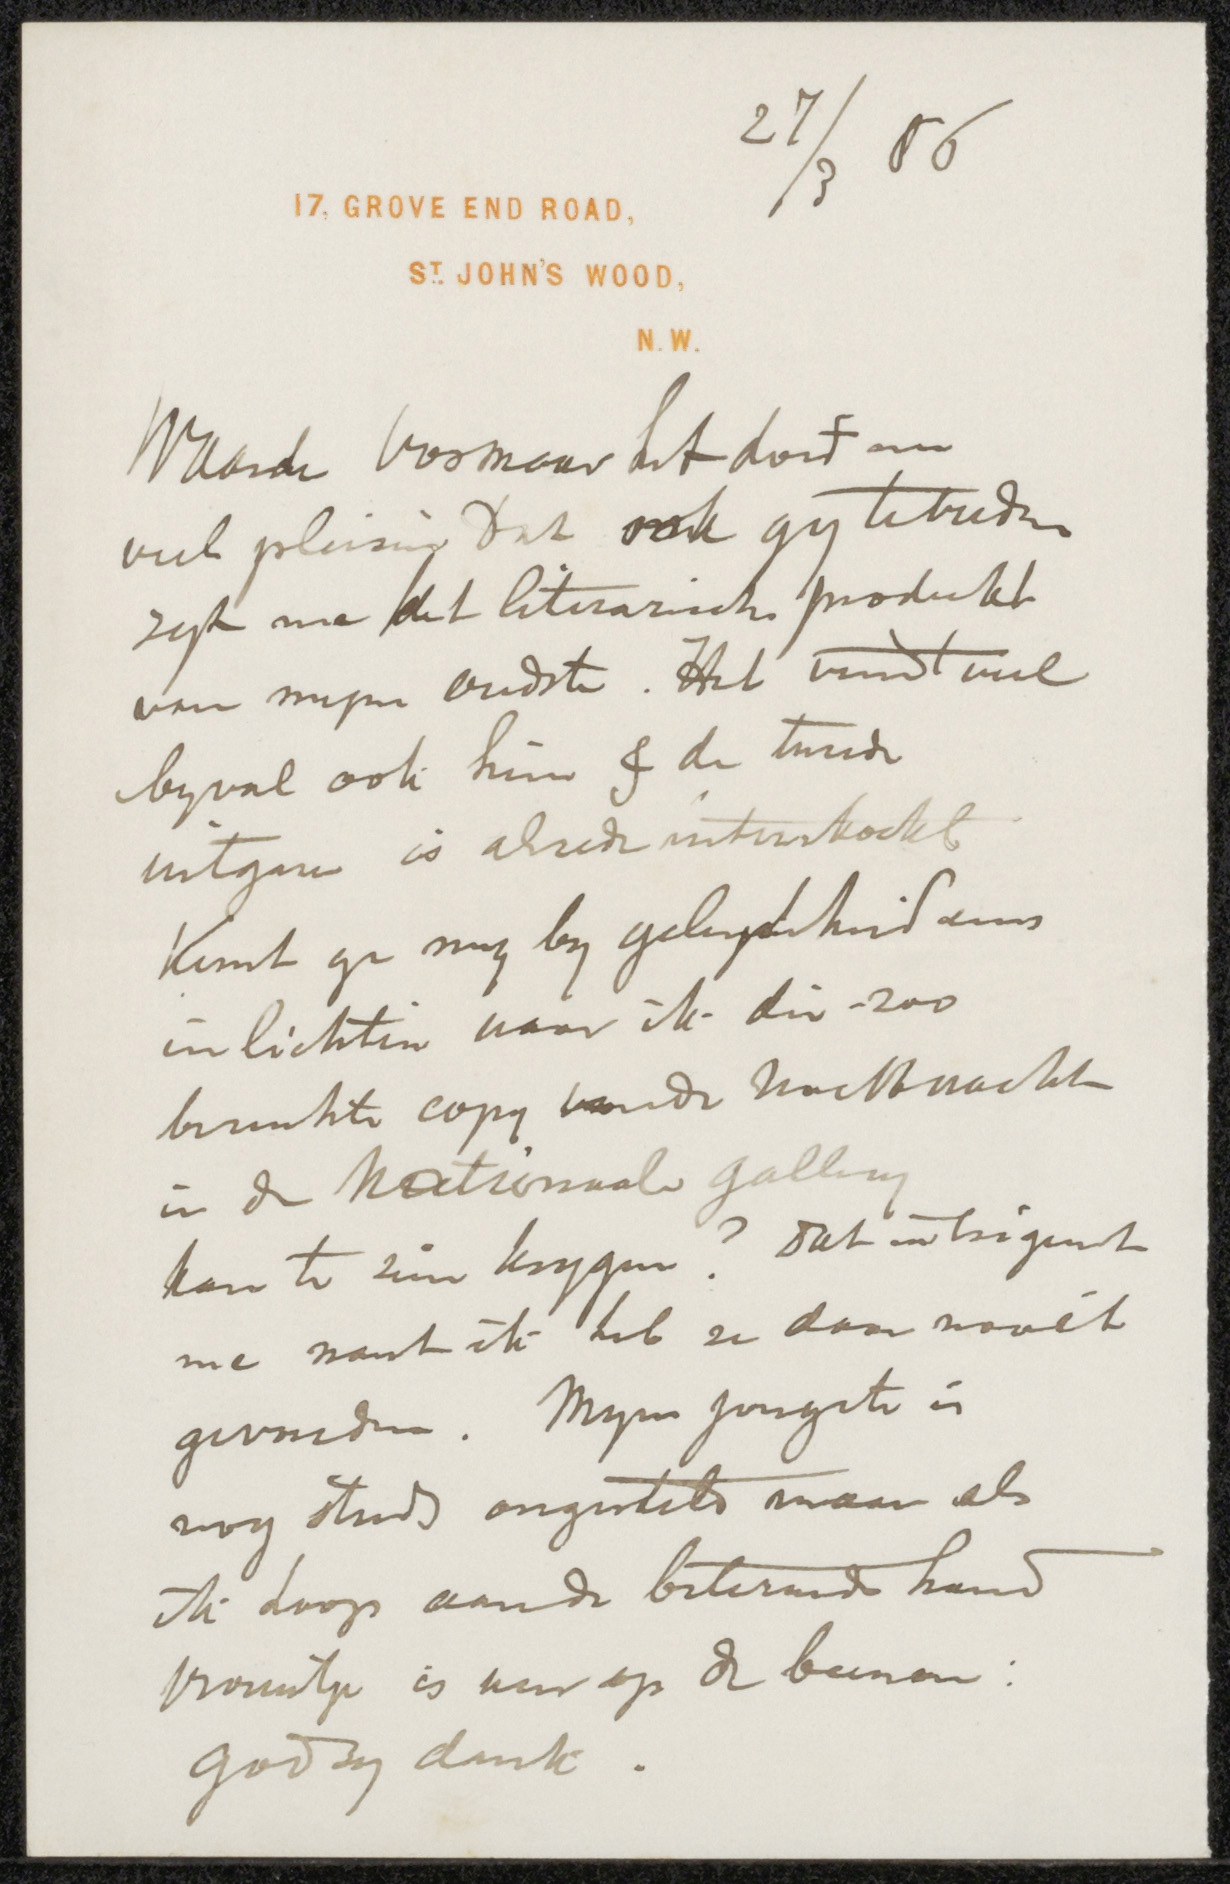 27/3 86
17, GROVE END ROAD,
ST. JOHN'S WOOD,
N.W.
Waarde Vosmaar het doet me
veel pleisir Dat ook gy tevreden
zyt me het literarische produkt
van myne oudste. Het vindt veel
byval ook hier & de tweede
uitgave is alrede uitverkockt
Kunt ge my by gelegenheid eens
inlichten waar ik die zoo
beruchte copy van de Nachtwacht
in de Nationaale gallery
kan te zien krygen? Dat intrigeert
me want ik heb ze daar nooit
gevonden. Myne jongste is
nog steeds ongesteld maar als
ik hoop aan de beterende hand
vrouwtje is weer op de beenen:
god zy dank.